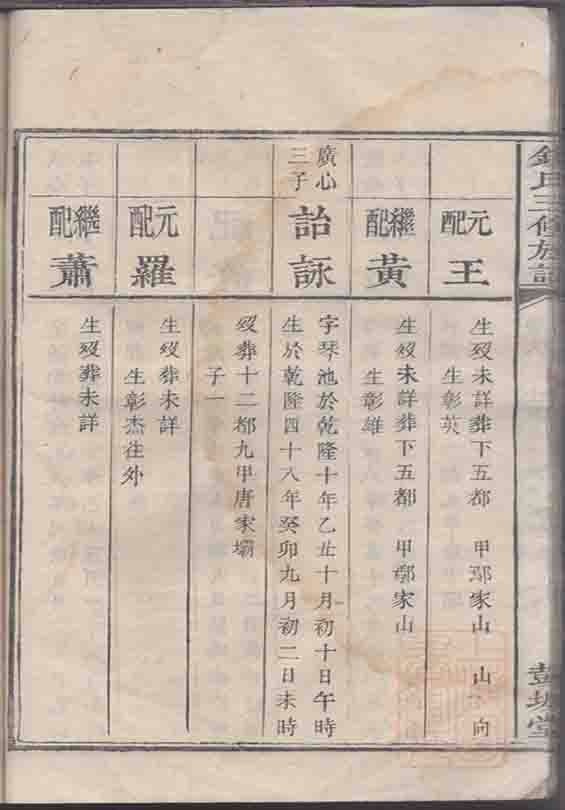 錢氏三修族譜
彭城堂
元配
王
生歿未詳葬下五都 甲鄢家山 山 向
生彰英
繼配
黃
生歿未詳葬下五都 甲鄢家山
生彰雄
廣心
三子
詒詠
字琴池於乾隆十年乙丑十月初十日午時
生於乾隆四十八年癸卯九月初二日未時
歿葬十二都九甲唐家壩
子一
元配
羅
生歿葬未詳
生彰杰往外
繼配
蕭
生歿葬未詳